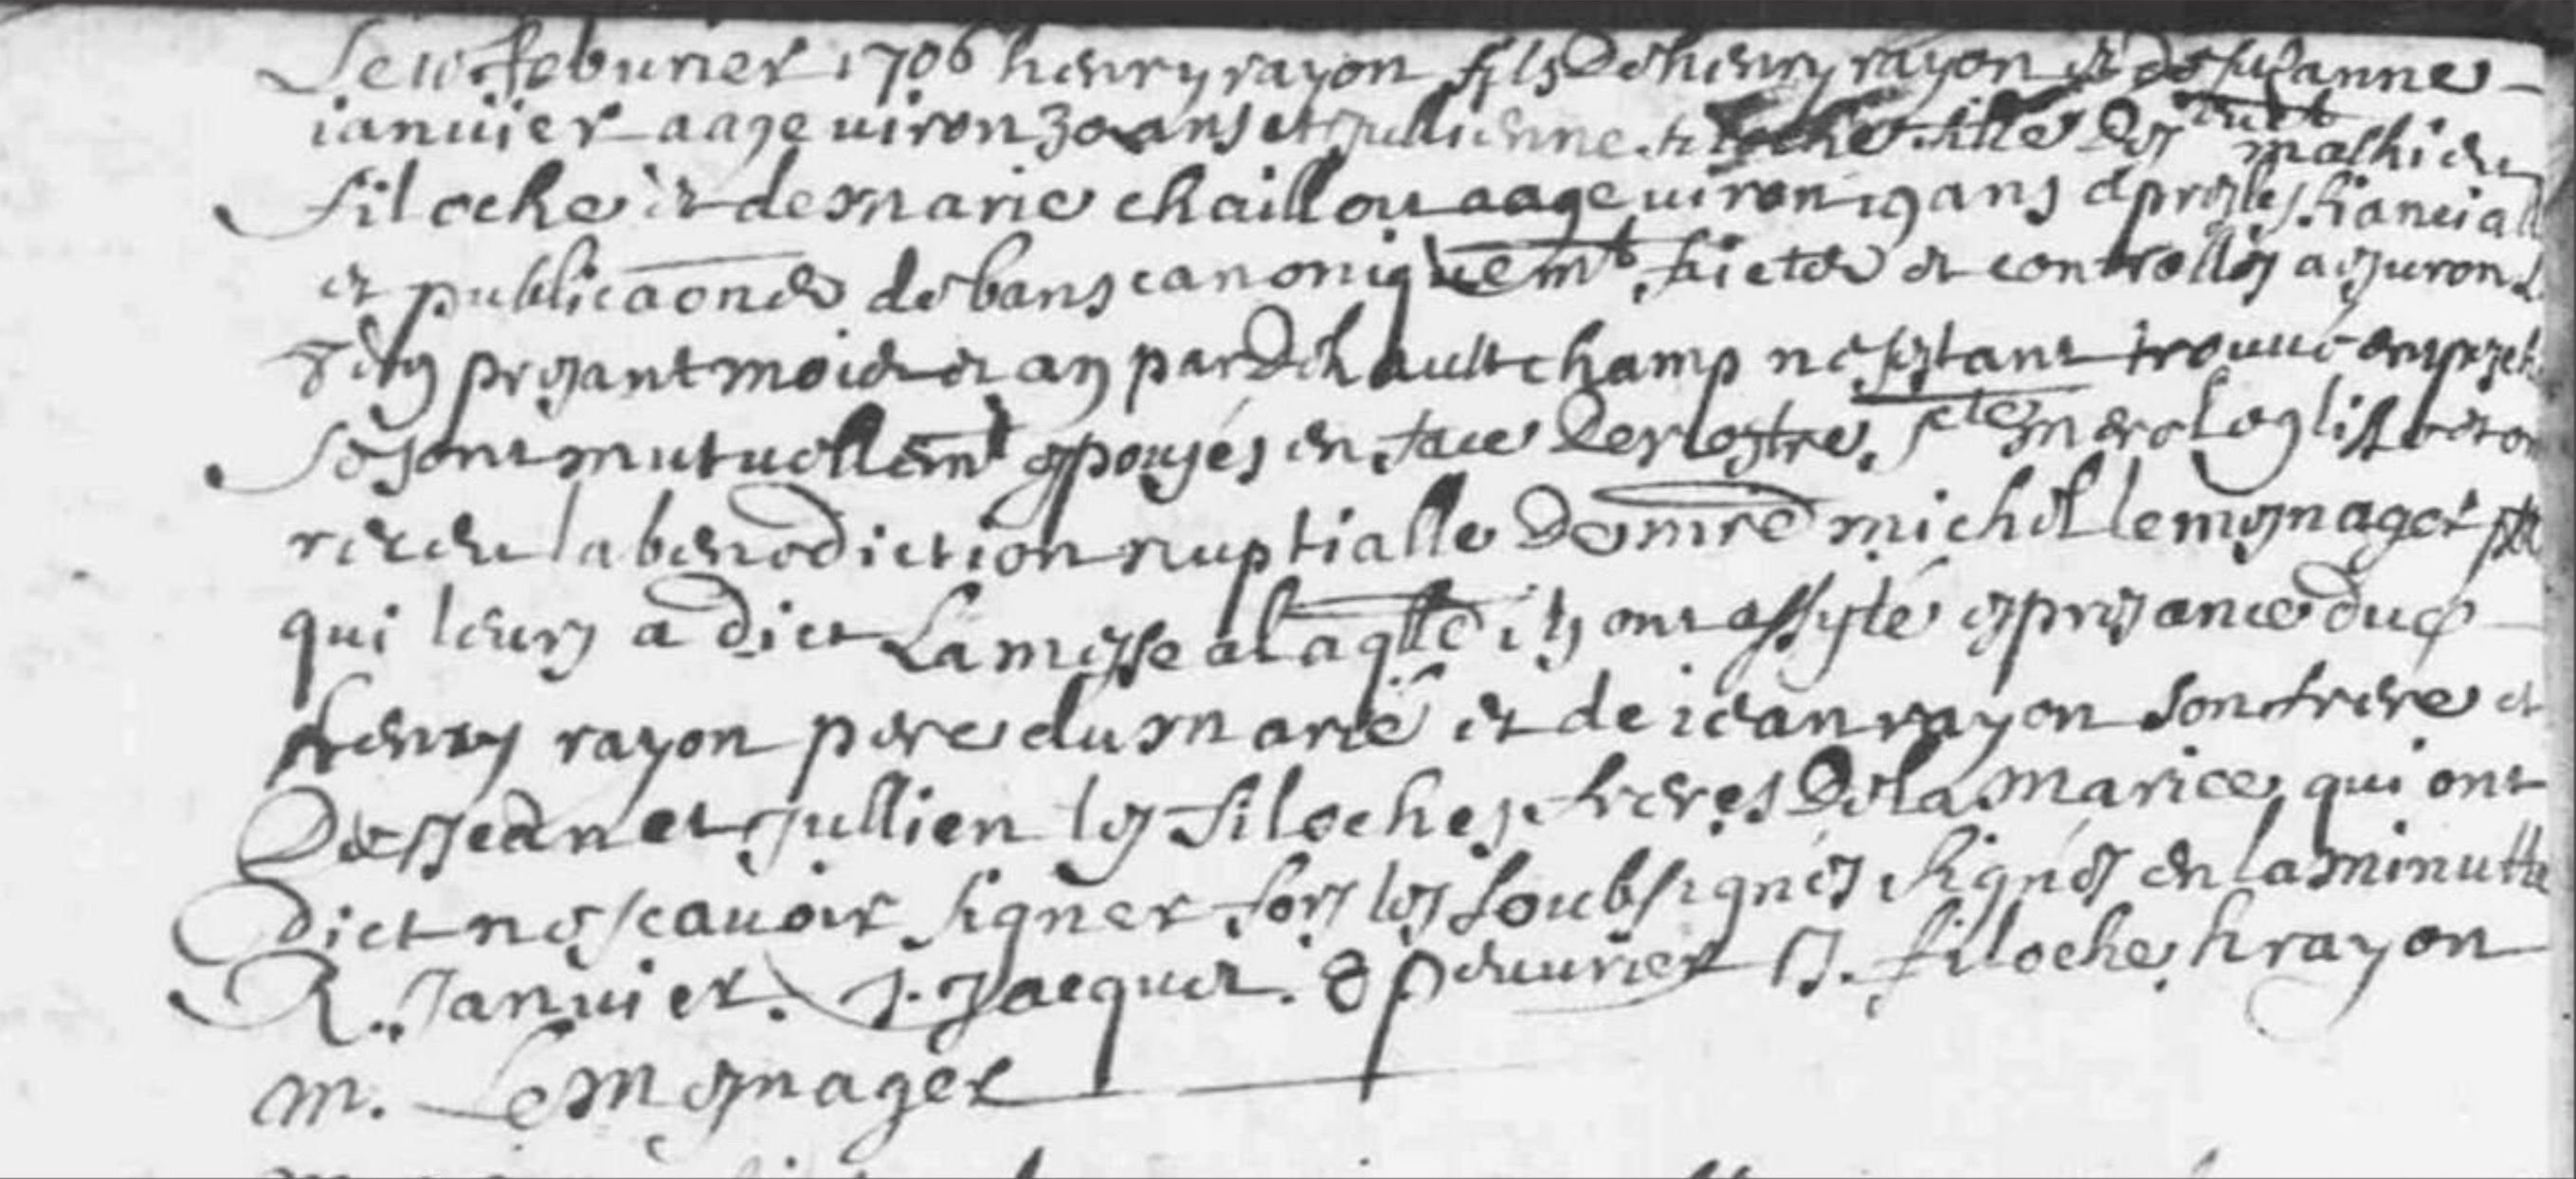 Le 10e feburier 1706 henry rayon fils de henry rayon et de susanne
januier aage uiron 30 ans et jullienne filoche fille de mathieu
filoche et de marie chaillou aage uiron 19 ans apres les fianciall
et publicaones de bans canoniquemt faictes et controllés a
presant mois et an par Dehaultchamp ne sestant trouué
se sont mutuellemt espousés en face de nostre ste mere leglise et on
receu la benediction nuptialle de mre michel lemesnager ptre
qui leurs a dict la messe a laqlle ils ont assisté es presance dud
henry rayon pere du marie et de iean rayon son frere et
de Jean et Jullien les filoches freres de la mariee qui ont
dict ne scauoir signer fors les soubsignés signés en la minutte
R. Januier. J. Jacquet. P euurier J. filoche h rayon
m. Lemesnager